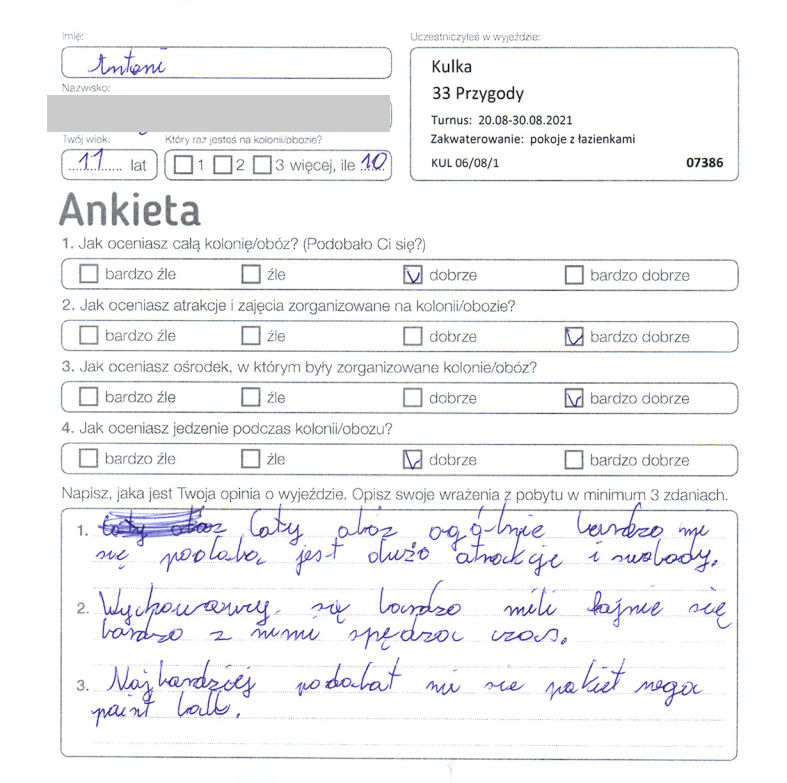 Imię:
Antoni
Uczestniczyłeś w wyjeździe:
Kulka
33 Przygody
Turnus: 20.08-30.08.2021
Zakwaterowanie: pokoje z łazienkami
KUL 06/08/1 07386
Nazwisko:
Twój wiek: Który raz jesteś na kolonii/obozie?
11 lat 1 2 3 więcej, ile 10
Ankieta
1. Jak oceniasz całą kolonię/obóz? (Podobało Ci się?)
bardzo źle źle dobrze bardzo dobrze
2. Jak oceniasz atrakcje i zajęcia zorganizowane na kolonii/obozie?
bardzo źle źle dobrze bardzo dobrze
3. Jak oceniasz ośrodek, w którym były zorganizowane kolonie/obóz?
bardzo źle źle dobrze bardzo dobrze
4. Jak oceniasz jedzenie podczas kolonii/obozu?
bardzo źle źle dobrze bardzo dobrze
Napisz, jaka jest Twoja opinia o wyjeździe. Opisz swoje wrażenia z pobytu w minimum 3 zdaniach.
1. Cały obóz ogólnie bardzo mi
się podoba jest dużo atrakcje i swobody.
2. Wychowawcy są bardzo mili fajnie się
bardzo z nimi spędza czas.
3. Najbardziej podobał mi sie pakiet mega
paint ball.